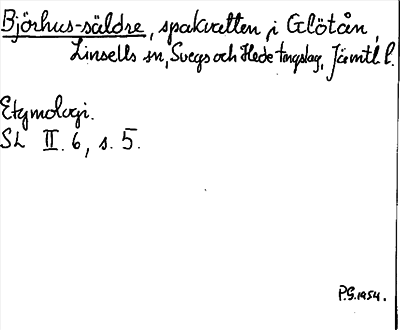 Björhus-säldre, spakvatten i Glötån,
Linsells sn, Svegs och Hede tingslag, Jämtl l.
Etymologi.
SL II. 6, s. 5.
P.G. 1954.